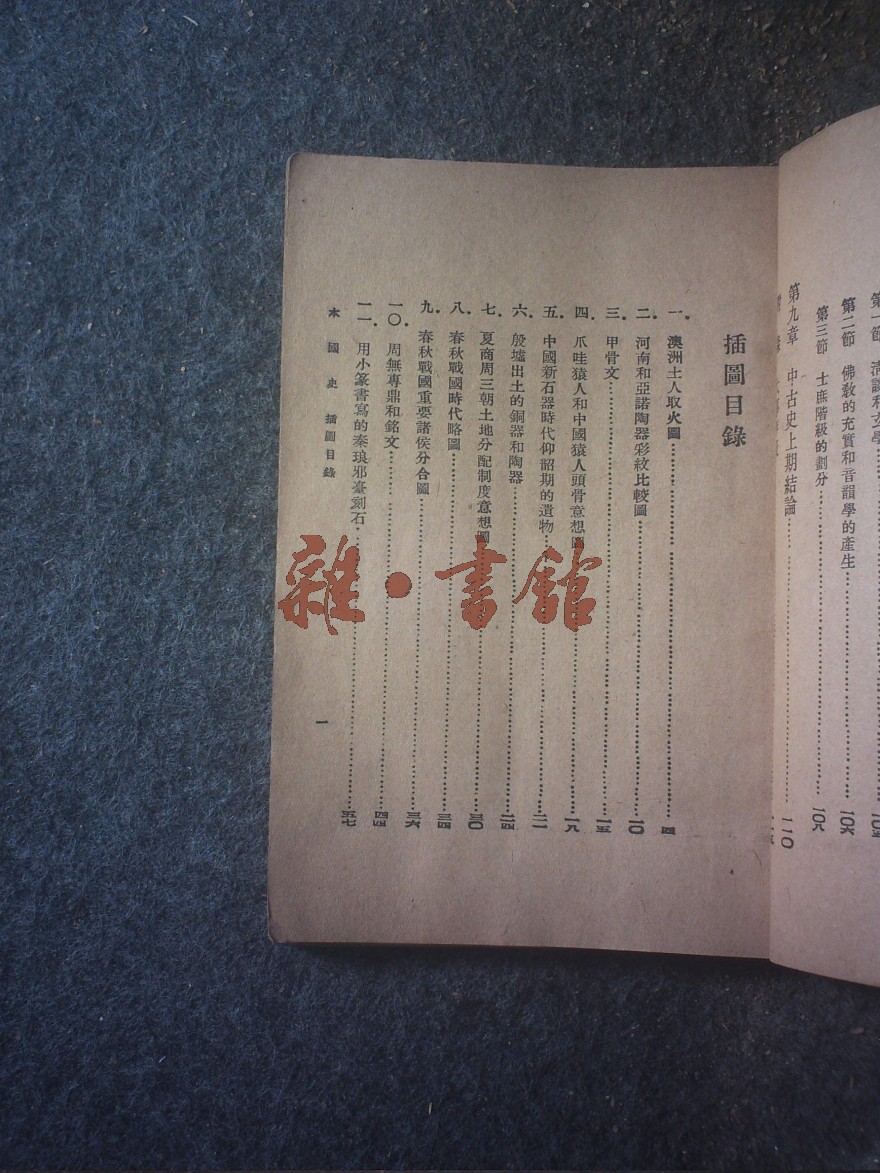 第一節　清談和玄學
第二節　佛教的充實和音韻學的產生……一〇六
第三節　士庶階級的劃分……一〇八
第九章　中古史上期結論……一一〇
插圖目錄
一．澳洲土人取火圖……四
二．河南和亞諾陶器彩紋比較圖……一〇
三．甲骨文……一五
四．爪哇猿人和中國猿人頭骨意想圖……一八
五．中國新石器時代仰韶期的遺物……二一
六．殷墟出土的銅器和陶器……二四
七．夏商周三朝土地分配制度意想圖……三〇
八．春秋戰國時代略圖……三四
九．春秋戰國重要諸侯分合圖……三六
一〇．周無專鼎和銘文……四四
一一．用小篆書寫的秦琅邪臺刻石……五七
本國史　插圖目錄
一
雜・書館